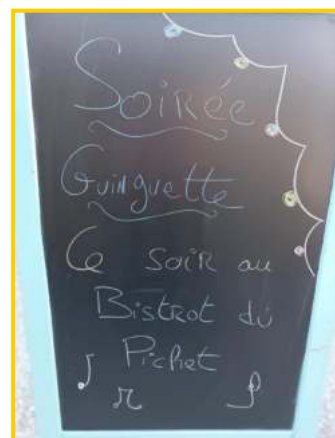 Soirée
Guinguette
Ce soir au
Bistrot du
Pichet